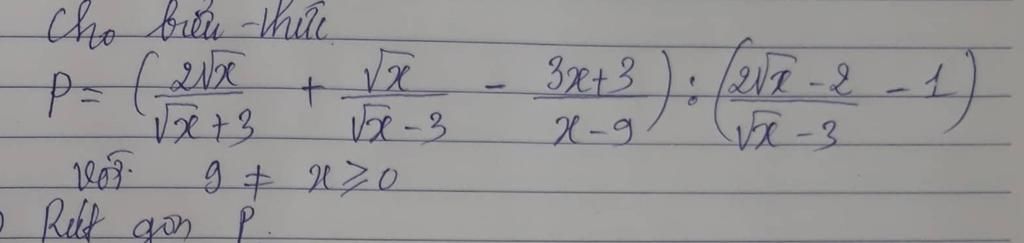 Cho biểu thức
P = ( 2√x / √x + 3 + √x / √x - 3 - 3x + 3 / x - 9 ) : ( 2√x - 2 / √x - 3 - 1 )
Với 9 ≠ x ≥ 0
) Rút gọn P.